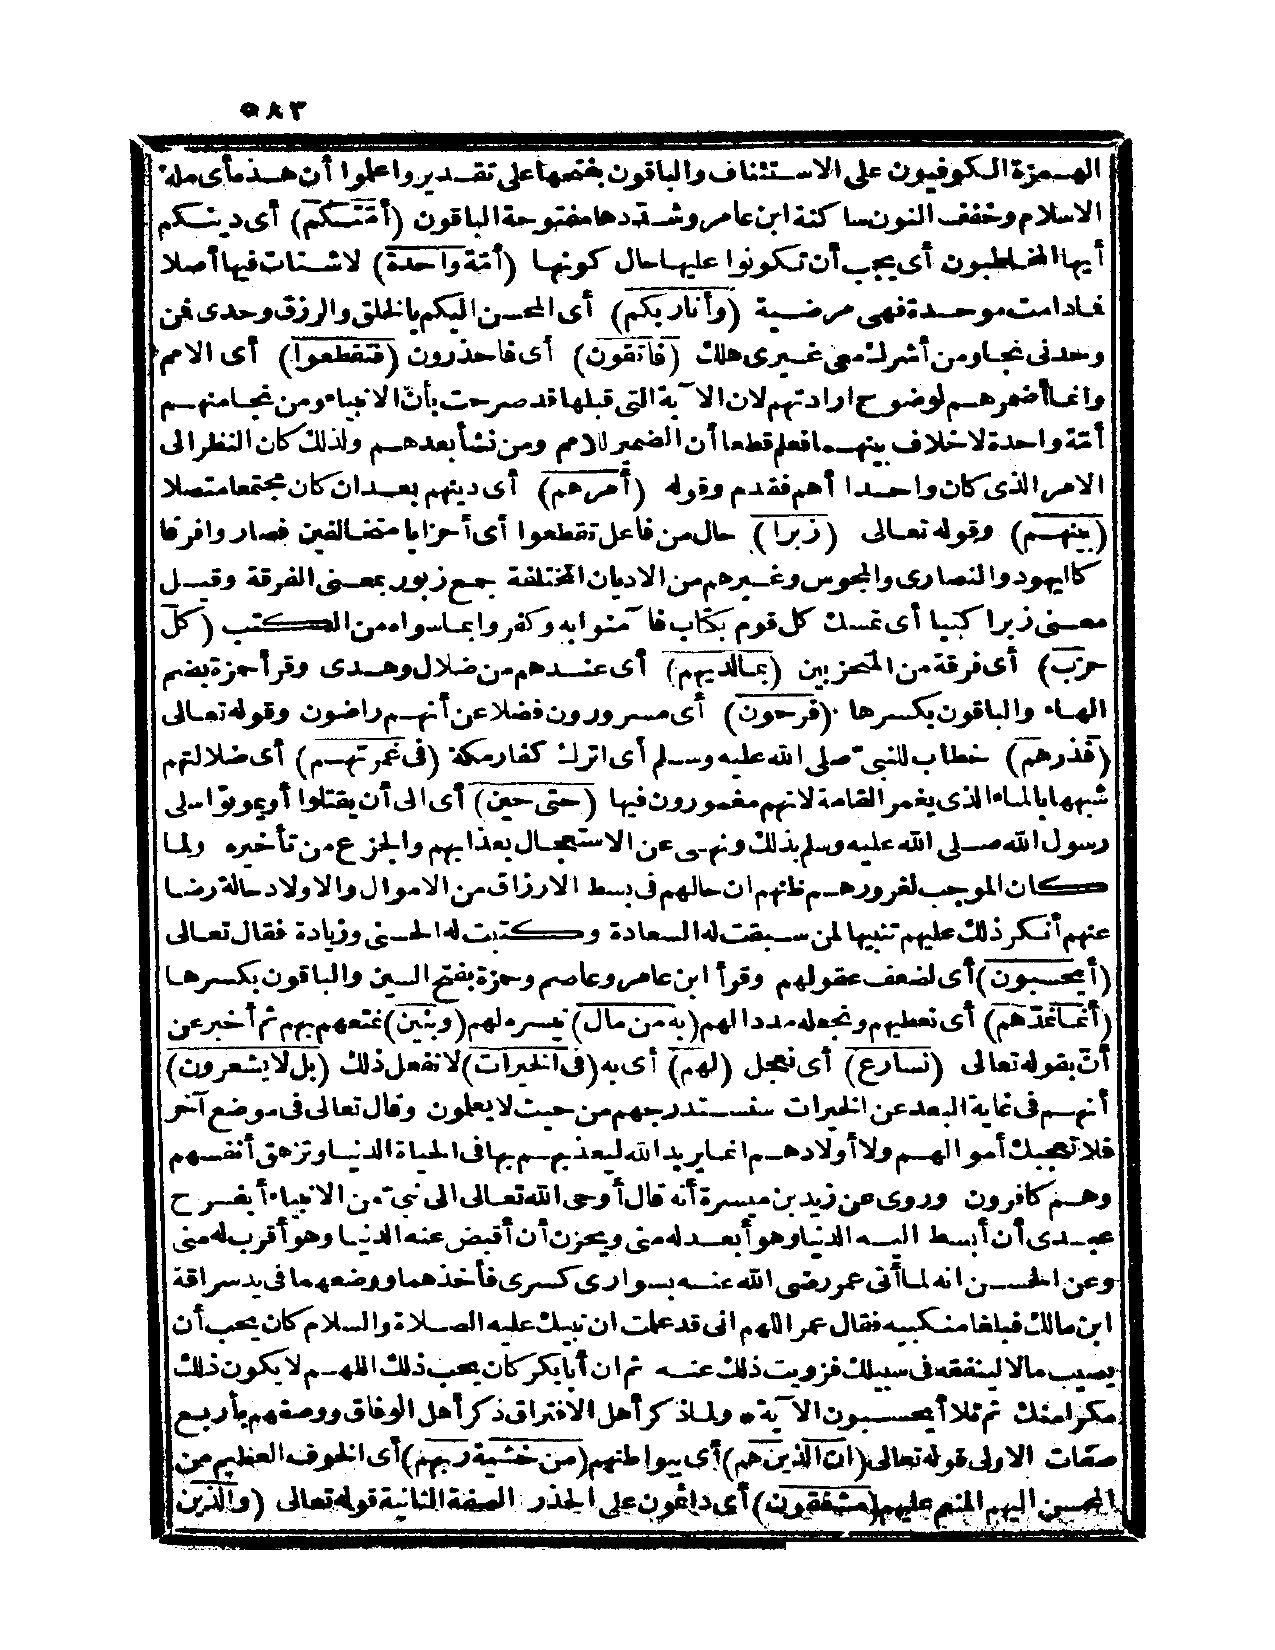 ٥٨٣
الهمزة الكوفيون على الاستئناف والباقون بفتحها على تقدير واعلموا أن هذه أى ملة
الاسلام وخفف النون ساكنة ابن عامر وشددها مفتوحة الباقون (أمّتكم) أى دينكم
أيها المخاطبون أى يجب أن تكونوا عليها حال كونها (أمّة واحدة) لا شتات فيها أصلا
فمادامت موحدة فهى مرضية (وأنا ربكم) أى المحسن اليكم بالخلق والرزق وحدى فمن
وحدنى نجا ومن أشرك معى غيرى هلك (فاتقون) أى فاحذرون (فتقطعوا) أى الامم
وانما أضمرهم لوضوح ارادتهم لان الآية التى قبلها قد صرحت بأنّ الانبياء ومن نجا منهم
أمّة واحدة لا خلاف بينهما فعلم قطعا أن الضمير للامم ومن نشأ بعدهم ولذلك كان النظر الى
الامر الذى كان واحدا أهم فقدم وقوله (أمرهم) أى دينهم بعد ان كان مجتمعا متصلا
(بينهم) وقوله تعالى (زبرا) حال من فاعل تقطعوا أى أحزابا متخالفين فصاروا فرقا
كاليهود والنصارى والمجوس وغيرهم من الاديان المختلفة جمع زبور بمعنى الفرقة وقيل
معنى زبرا كتبا أى تمسك كل قوم بكتاب فآمنوا به وكفروا بما سواه من الكتب (كل
حزب) أى فرقة من المتحزبين (بما لديهم) أى عندهم من ضلال وهدى وقرأ حمزة بضم
الهاء والباقون بكسرها (فرحون) أى مسرورون فضلا عن أنهم راضون وقوله تعالى
(فذرهم) خطاب للنبىّ صلى الله عليه وسلم أى اترك كفار مكة (فى غمرتهم) أى ضلالتهم
شبهها بالماء الذى يغمر القامة لانهم مغمورون فيها (حتى حين) أى الى أن يقتلوا أو يموتوا سلى
رسول الله صلى الله عليه وسلم بذلك ونهى عن الاستعجال بعذابهم والجزع من تأخيره ولما
كان الموجب لغرورهم ظنهم ان حالهم فى بسط الارزاق من الاموال والاولاد حالة رضا
عنهم أنكر ذلك عليهم تنبيها لمن سبقت له السعادة وكتبت له الحسنى وزيادة فقال تعالى
(أيحسبون) أى لضعف عقولهم وقرأ ابن عامر وعاصم وحمزة بفتح السين والباقون بكسرها
(أنما نمدّهم) أى نعطيهم ونجعله مددا لهم (به من مال) نيسره لهم (وبنين) نمتعهم بهم ثم أخبر عن
أنّ بقوله تعالى (نسارع) أى نعجل (لهم) أى به (فى الخيرات) لا نفعل ذلك (بل لا يشعرون)
أنهم فى غاية البعد عن الخيرات سنستدرجهم من حيث لا يعلمون وقال تعالى فى موضع آخر
فلا تعجبك أموالهم ولا أولادهم انما يريد الله ليعذبهم بها فى الحياة الدنيا وتزهق أنفسهم
وهم كافرون وروى عن زيد بن ميسرة أنه قال أوحى الله تعالى الى نبىّ من الانبياء أيفرح
عبدى أن أبسط اليه الدنيا وهو أبعد له منى ويحزن أن أقبض عنه الدنيا وهو أقرب له منى
وعن الحسن انه لما أتى عمر رضى الله عنه بسوارى كسرى فأخذهما ووضعهما فى يد سراقة
ابن مالك فبلغا منكبيه فقال عمر اللهم انى قد علمت ان نبيك عليه الصلاة والسلام كان يحب أن
يصيب مالا لينفقه فى سبيلك فزويت ذلك عنه ثم ان أبا بكر كان يحب ذلك اللهم لا يكون ذلك
مكرا منك ثم تلا أيحسبون الآية * ولما ذكر أهل الافتراق ذكر أهل الوفاق ووصفهم بأربع
صفات الاولى قوله تعالى (ان الذين هم) أى ببواطنهم (من خشية ربهم) أى الخوف العظيم من
المحسن اليهم المنعم عليهم (مشفقون) أى دائمون على الحذر الصفة الثانية قوله تعالى (والذين